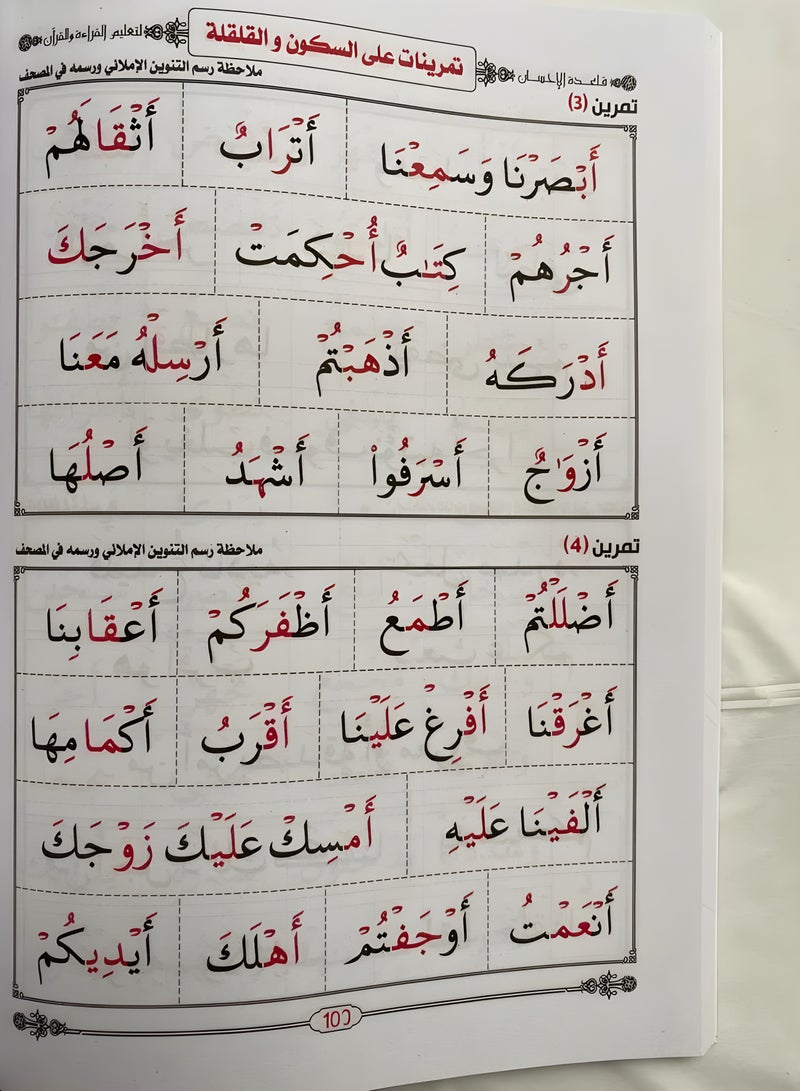 قاعدة الإحسان
تمرينات على السكون و القلقلة
لتعليم القراءة والقرآن
تمرين (3)
ملاحظة رسم التنوين الإملائي ورسمه في المصحف
أَبْصَرْنَا وَسَمِعْنَا أَتْرَابٌ أَثْقَالَهُمْ
أَجْرُهُمْ كِتَـٰبٌ أُحْكِمَتْ أَخْرَجَكَ
أَدْرَكَهُ أَذْهَبْتُمْ أَرْسِلْهُ مَعَنَا
أَزْوَٰجٌ أَسْرَفُواْ أَشْهَدُ أَصْلُهَا
تمرين (4)
ملاحظة رسم التنوين الإملائي ورسمه في المصحف
أَضْلَلْتُمْ أَطْمَعُ أَظْفَرَكُمْ أَعْقَابِنَا
أَغْرَقْنَا أَفْرِغْ عَلَيْنَا أَقْرَبُ أَكْمَامِهَا
أَلْفَيْنَا عَلَيْهِ أَمْسِكْ عَلَيْكَ زَوْجَكَ
أَنْعَمْتُ أَوْجَفْتُمْ أَهْلَكَ أَيْدِيكُمْ
100